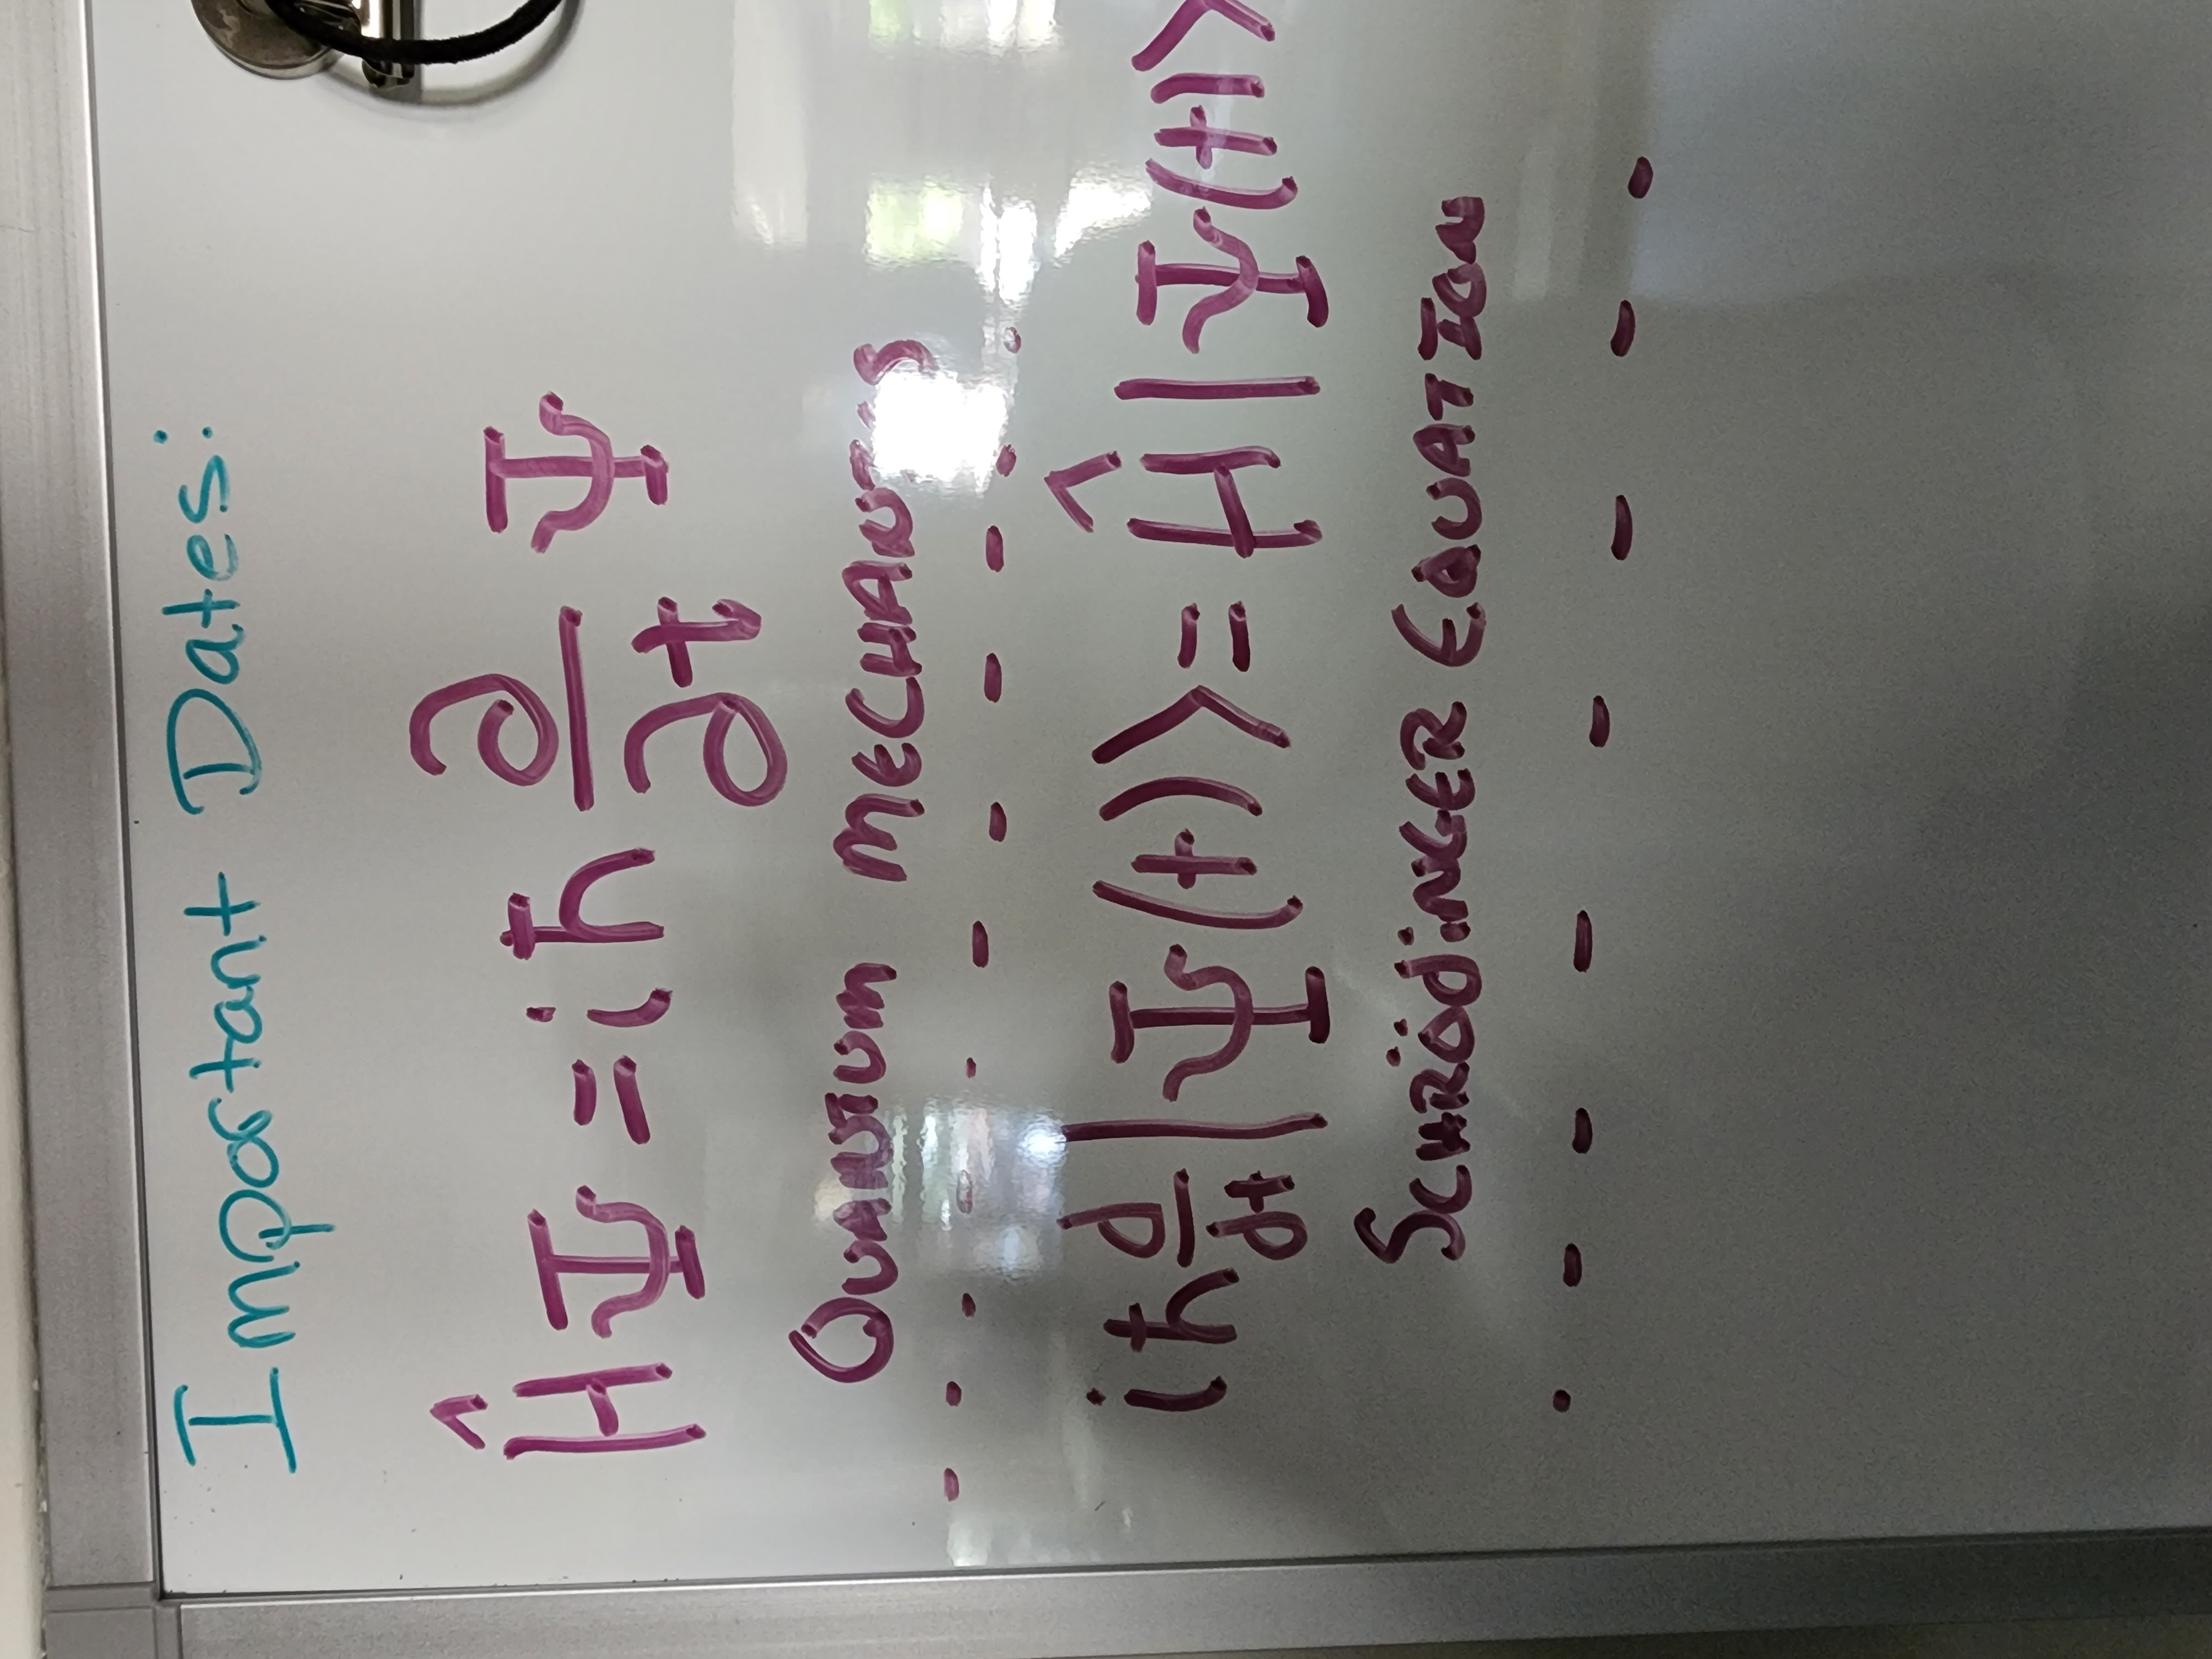 Important Dates:
ĤΨ = iħ ∂/∂t Ψ
QUANTUM MECHANICS
iħ d/dt |Ψ(t)> = Ĥ|Ψ(t)>
SCHRÖDiNGER EQUATION